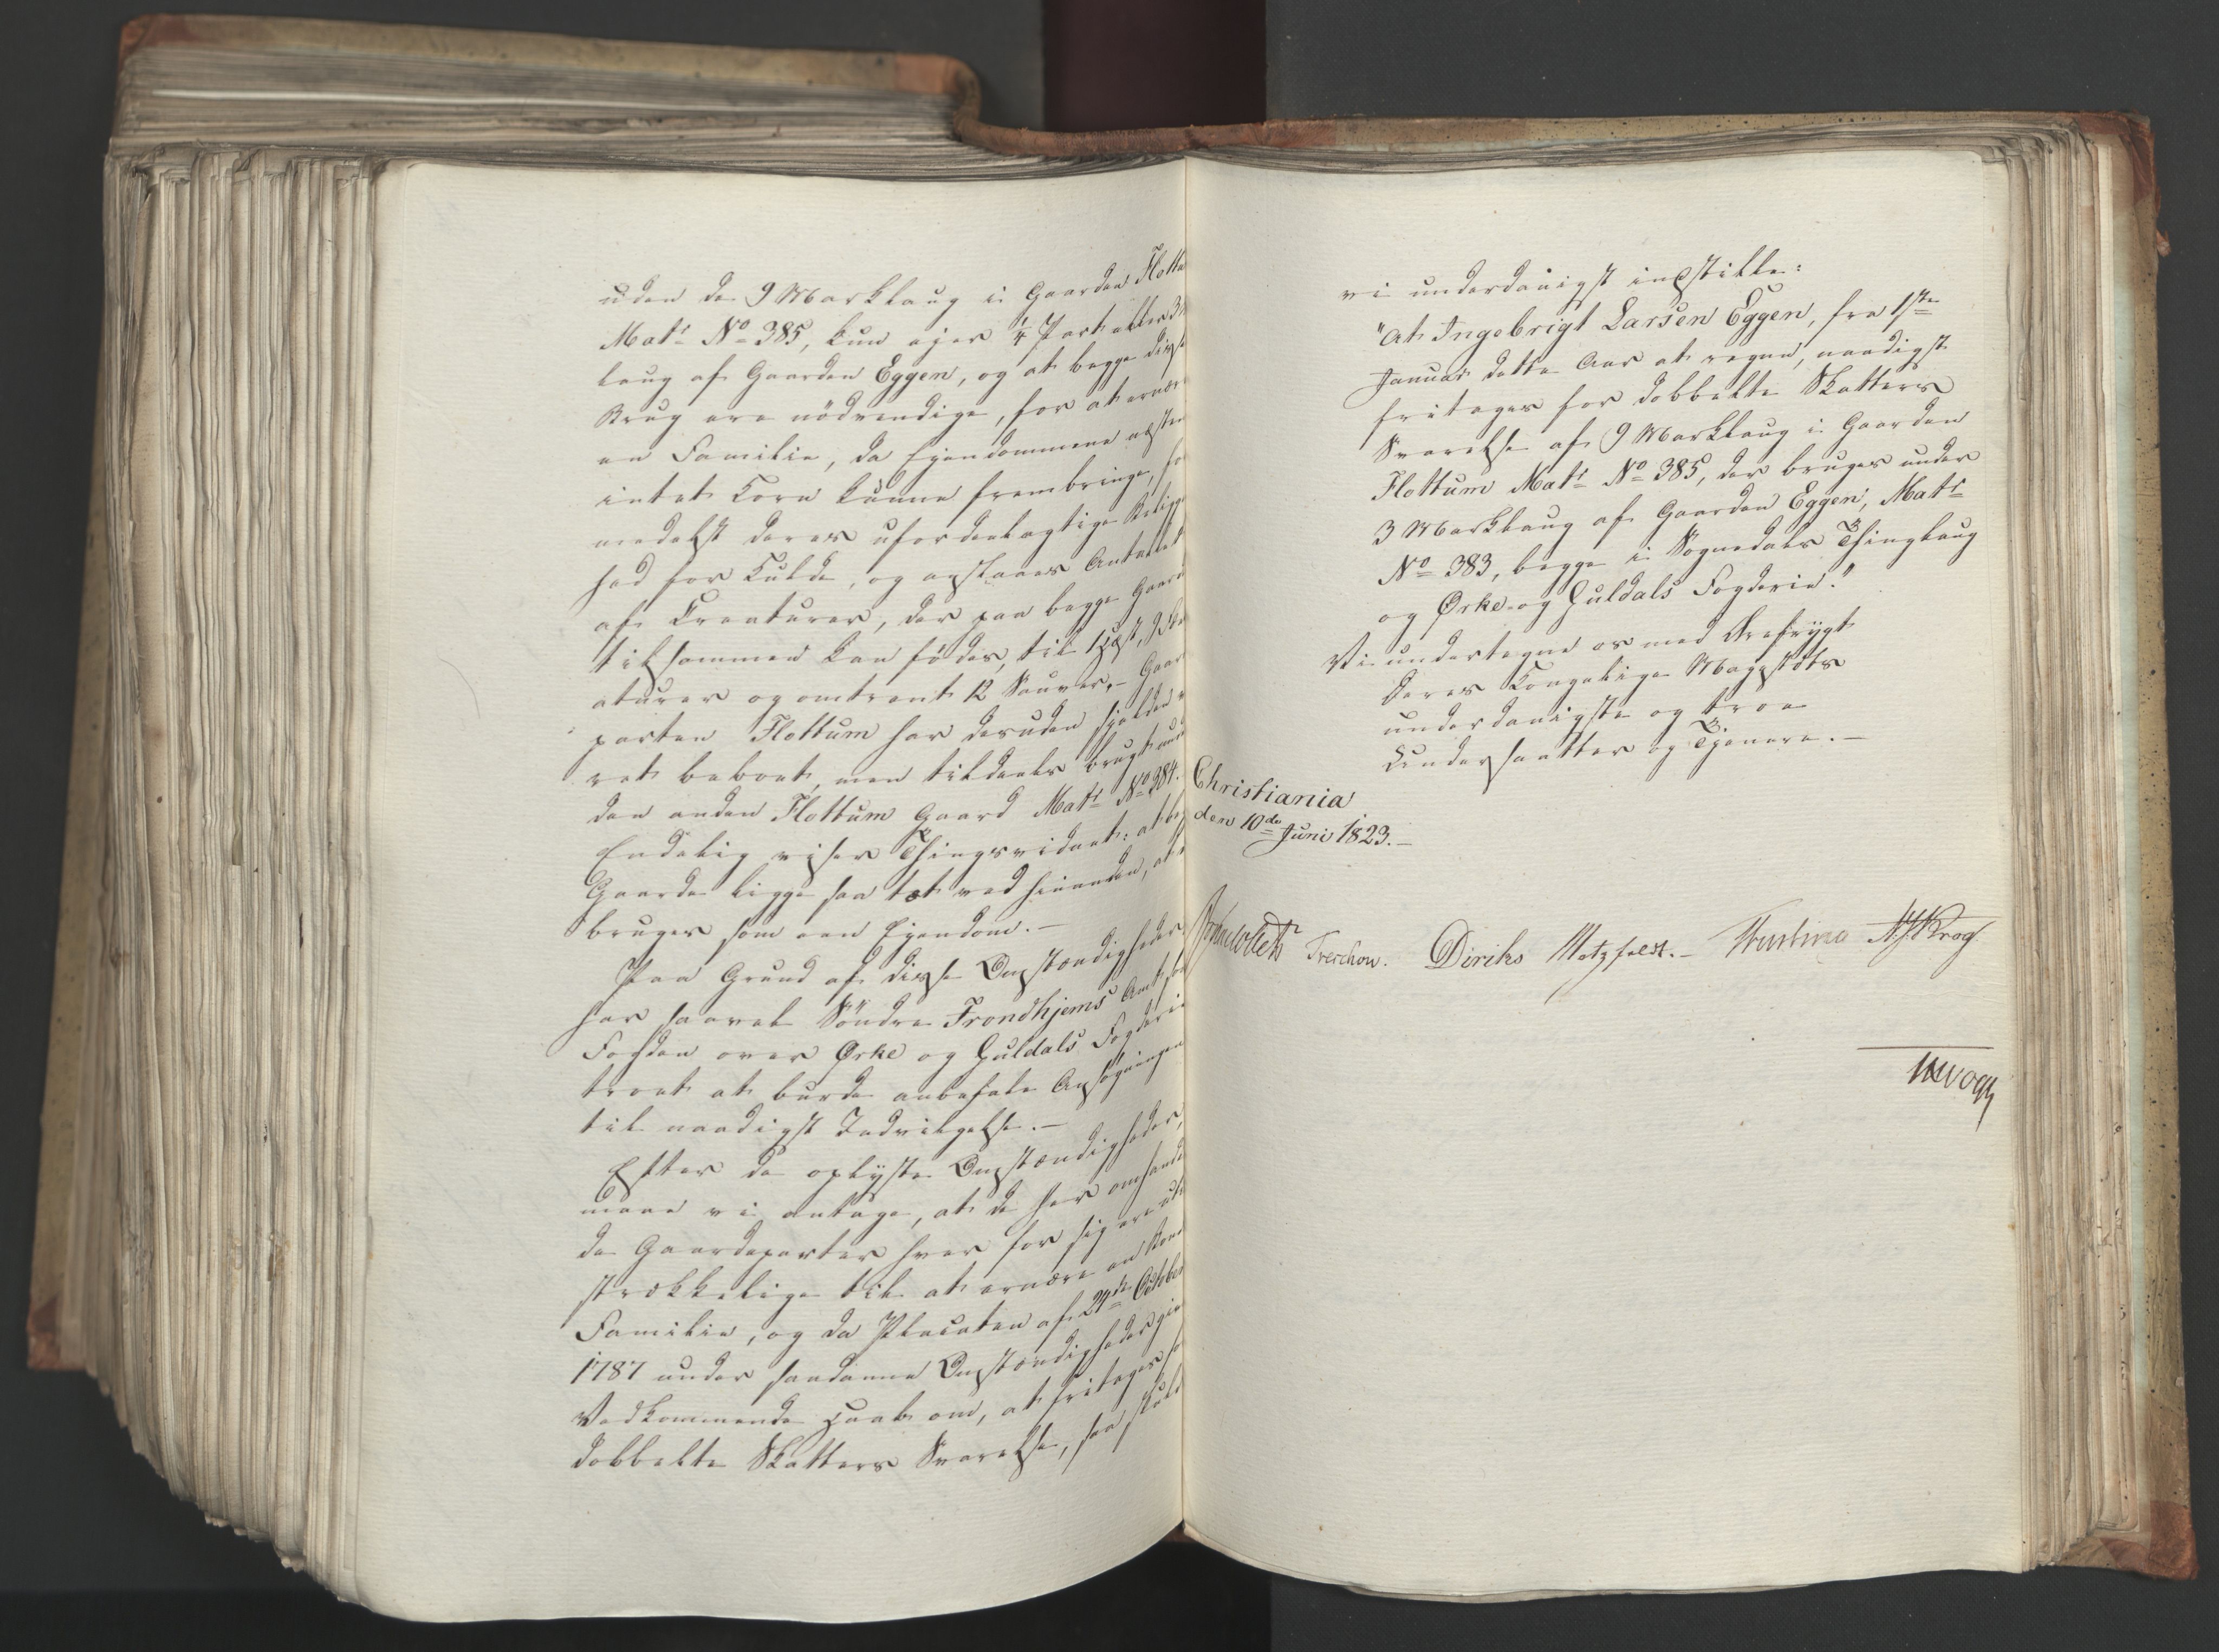 uden de 9 Marklaug i Gaarden Flottu
Matr No 385, kun ejer 1/4 Part eller 3
laug af Gaarden Eggen, og at begge disse
Brug ere nödvendige, for at ernære
en Familie, da Ejendommene næsten
intet Korn kunne frembringe, for
medelst deres ufordeelagtige Beligge
hed for Kulde, og ansLaaes Antallet
af Creaturer, der paa begge Gaard
tilsammen kan födes, til 1 Hest, 9
aturer og omtrent 12 Sauver, – Gaard
parten Flottum har desuden sjelden v
ret beboet, men tildeels brugt und
den anden Flottum Gaard Matr No 384.
Endelig viser Thingsvidnet: at be
Gaarde ligge saa tæt ved hinanden, at
bruges som een Ejendom. –
Paa Grund af disse Omstændigheder
har saavel Söndre Trondhjems Amt som
Fogden over Ørke og Guldals Fogderie
troet at burde anbefale Ansøgningen
til naadigst Indvilgelse. –
Efter de oplyste Omstændigheder,
maae vi antage, at de her omhand
de Gaardeparter hver for sig ere util
strækkelige til at ernære en Bond
Familie, og da Placaten af 24de October
1787 under saadanne Omstændigheder giv
Vedkommende Haab om, at fritages fo
dobbelte Skatters Svarelse, saa skul
vi underdanigst indstille:
"At Ingebrigt Larsen Eggen, fra 1ste
Januar dette Aar at regne, naadigst
fritages for dobbelte Skatters
Svarelse af 9 Marklaug i Gaarden
Flottum Matr No 385, der bruges under
3 Marklaug af Gaarden Eggen, Matr
No 383, begge i Sognedals Thinglaug
og Ørke- og Guldals Fogderie."
Vi undertegne os med Ærefrygt
Deres Kongelige Majestæts
underdanigste og troe
Undersaatter og Tjenere. –
Christiania
den 10de Juni 1823. –
Treschow. Diriks Motzfeldt. – Krog.